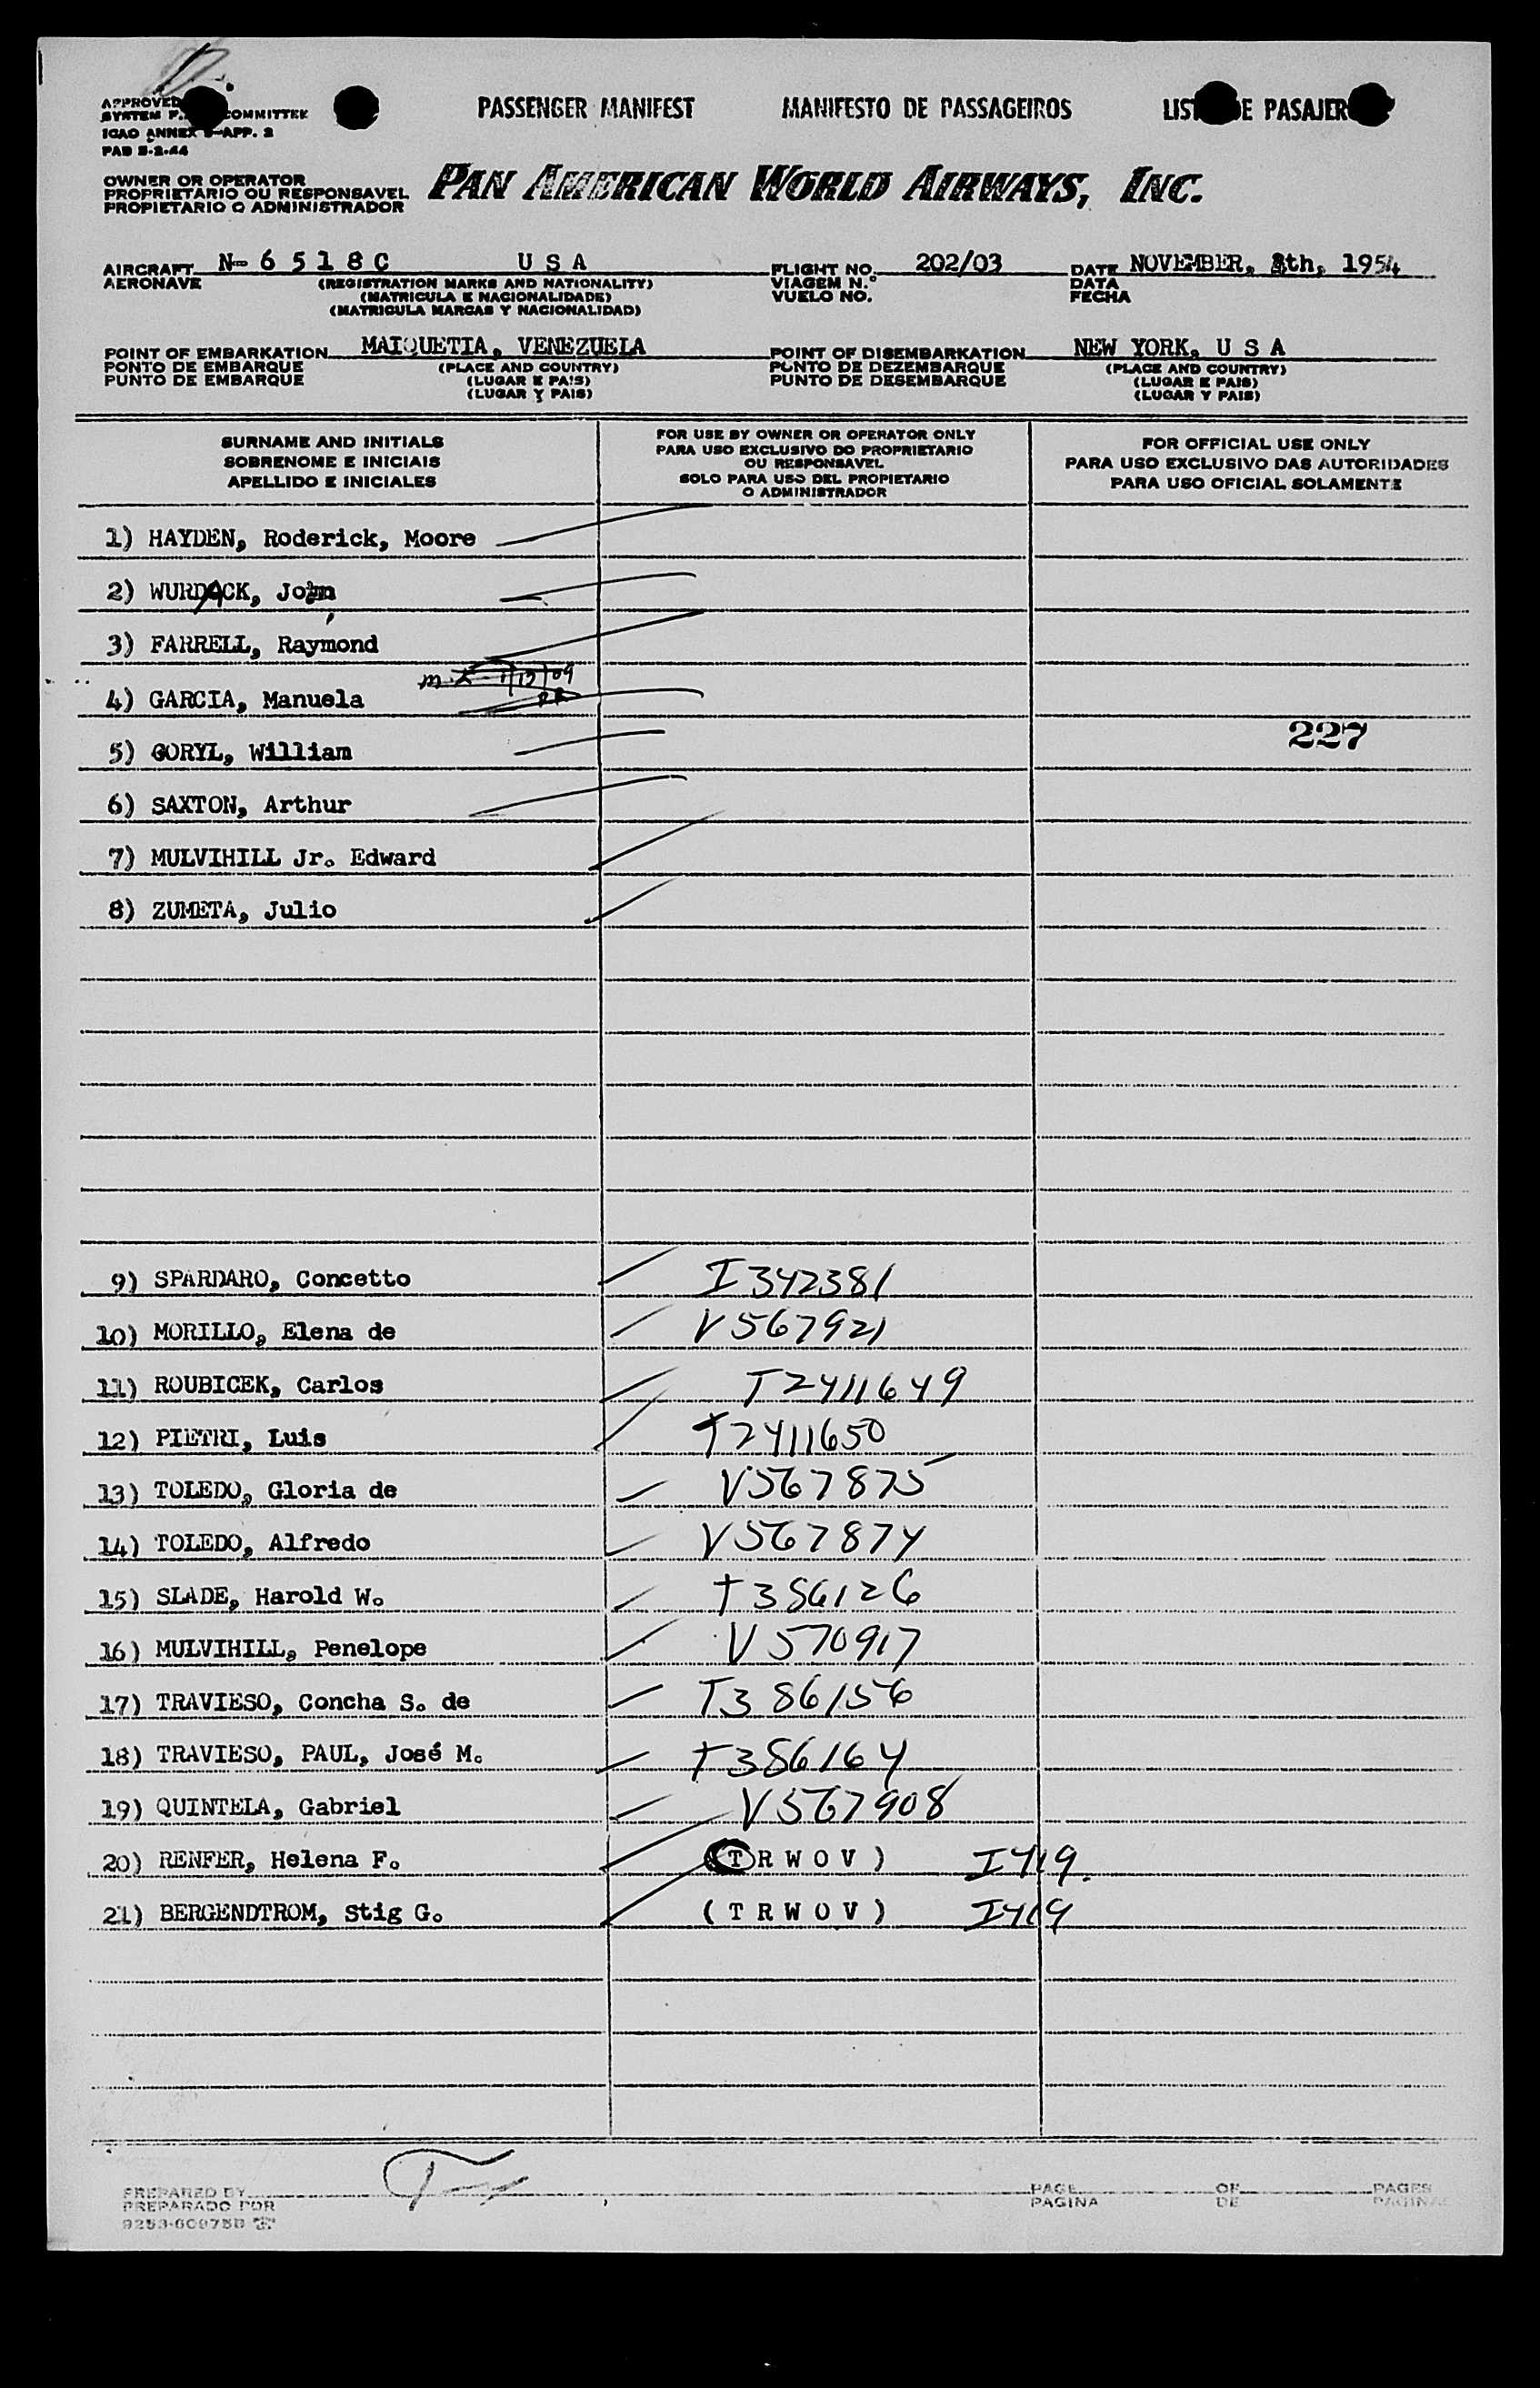 PASSENGER MANIFEST MANIFESTO DE PASSAGEIROS
APPROVED COMMITTEE
ICAO ANNEX APP. 2
PAB 5-2-44
OWNER OR OPERATOR
PROPRIETARIO OU RESPONSAVEL
PROPIETARIO O ADMINISTRADOR
PAN AMERICAN WORLD AIRWAYS, INC.
AIRCRAFT N-6518C USA FLIGHT NO. 202/03 DATE NOVEMBER, 8th, 1954
AERONAVE (REGISTRATION MARKS AND NATIONALITY) VIAGEM N.° DATA
(MATRICULA E NACIONALIDADE) VUELO NO. FECHA
(MATRICULA MARCAS Y NACIONALIDAD)
POINT OF EMBARKATION MAIQUETIA, VENEZUELA POINT OF DISEMBARKATION NEW YORK, U S A
PONTO DE EMBARQUE (PLACE AND COUNTRY) PONTO DE DEZEMBARQUE (PLACE AND COUNTRY)
PUNTO DE EMBARQUE (LUGAR E PAIS) PUNTO DE DESEMBARQUE (LUGAR E PAIS)
(LUGAR Y PAIS) (LUGAR Y PAIS)
SURNAME AND INITIALS
SOBRENOME E INICIAIS
APELLIDO E INICIALES
FOR USE BY OWNER OR OPERATOR ONLY
PARA USO EXCLUSIVO DO PROPRIETARIO
OU RESPONSAVEL
SOLO PARA USO DEL PROPIETARIO
O ADMINISTRADOR
FOR OFFICIAL USE ONLY
PARA USO EXCLUSIVO DAS AUTORIDADES
PARA USO OFICIAL SOLAMENTE
1) HAYDEN, Roderick, Moore
2) WURDACK, John
3) FARRELL, Raymond
4) GARCIA, Manuela
227
5) GORYL, William
6) SAXTON, Arthur
7) MULVIHILL Jr. Edward
8) ZUMETA, Julio
9) SPARDARO, Concetto I342381
10) MORILLO, Elena de V567921
11) ROUBICEK, Carlos T2411649
12) PIETRI, Luis T2411650
13) TOLEDO, Gloria de V567875
14) TOLEDO, Alfredo V567874
15) SLADE, Harold W. T386126
16) MULVIHILL, Penelope V570917
17) TRAVIESO, Concha S. de T386156
18) TRAVIESO, PAUL, José M. T386164
19) QUINTELA, Gabriel V567908
20) RENFER, Helena F. (T R W O V) I419.
21) BERGENDTROM, Stig G. (T R W O V) I419
PREPARED BY PAGE OF PAGES
PREPARADO POR PAGINA DE PAGINAS